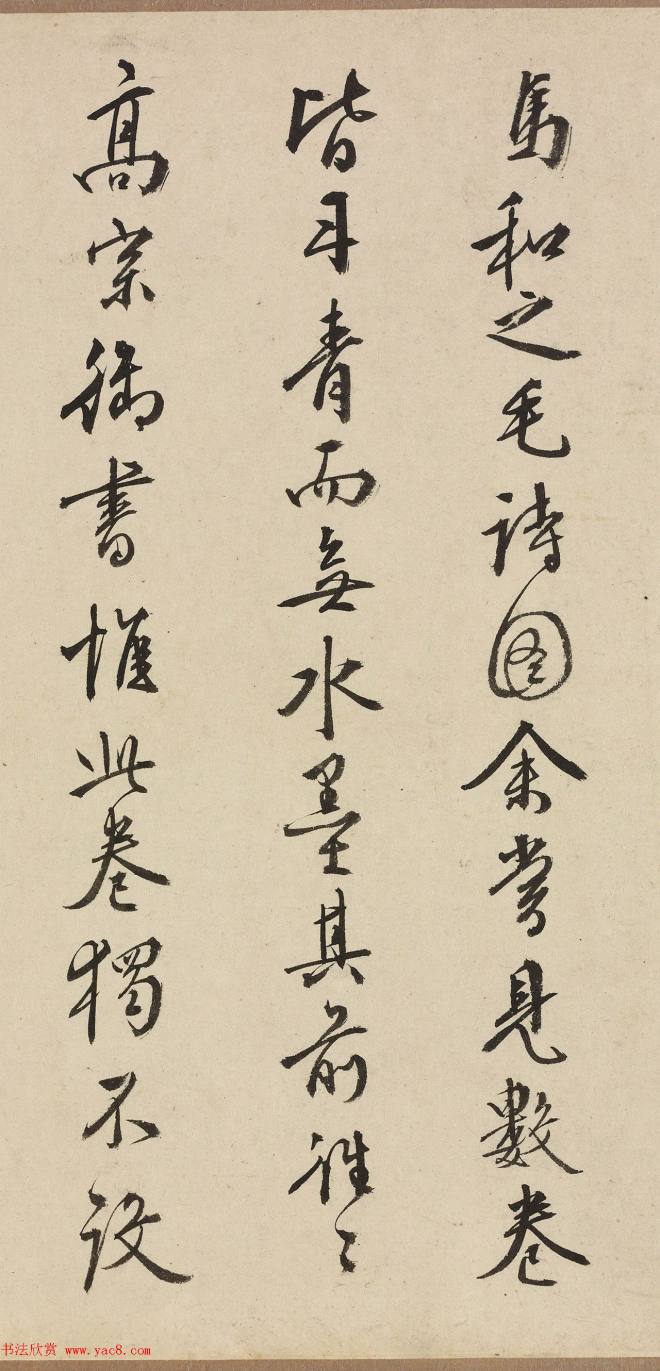 馬和之毛詩图余嘗見數卷
皆丹青而無水墨其前往〻
髙宗御書惟此卷獨不設
书法欣赏 www.yac8.com